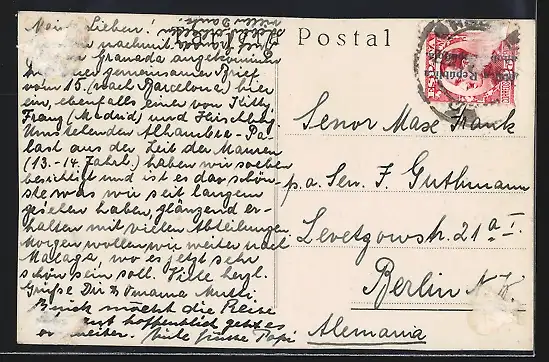 Meine Lieben!
nachmittag
Granada angekommen
gemeinsamer Brief
vom 15. (nach Barcelona) hier
ein, ebenfalls einer von Kitty,
Franz (Madrid) und Hirschberg
Umstehenden Alhambra-Pa-
last aus der Zeit der Mauren
(13.-14. Jahrh.) haben wir soeben
besichtigt und ist es das schön-
ste was wir seit langem
gesehen haben, glänzend er-
halten mit vielen Abteilungen
Morgen wollen wir weiter nach
Malaga, wo es jetzt sehr
schön sein soll. Viele herzl.
Grüße Dir & Omama Mutti
Rück macht die Reise
hoffentlich geht es
weiter. Viele Grüsse Papi
vielen Dank
Postal
Senor Max Frank
p.a. Sen. F. Guthmann
Levetzowstr. 21a I.
Berlin N.W.
Alemania
República